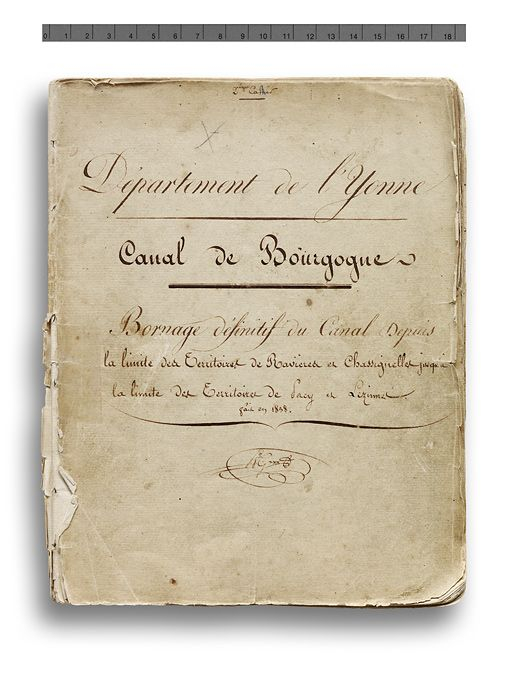 0 1 2 3 4 5 6 7 8 9 10 11 12 13 14 15 16 17 18
Cahier
Département de l'Yonne
Canal de Bourgogne
Bornage définitif du Canal Depuis
la limite des Territoires de Ravières et Chassignelles jusqu'à
la limite des Territoires de Pacy et Lezinnes
fait en 1838.